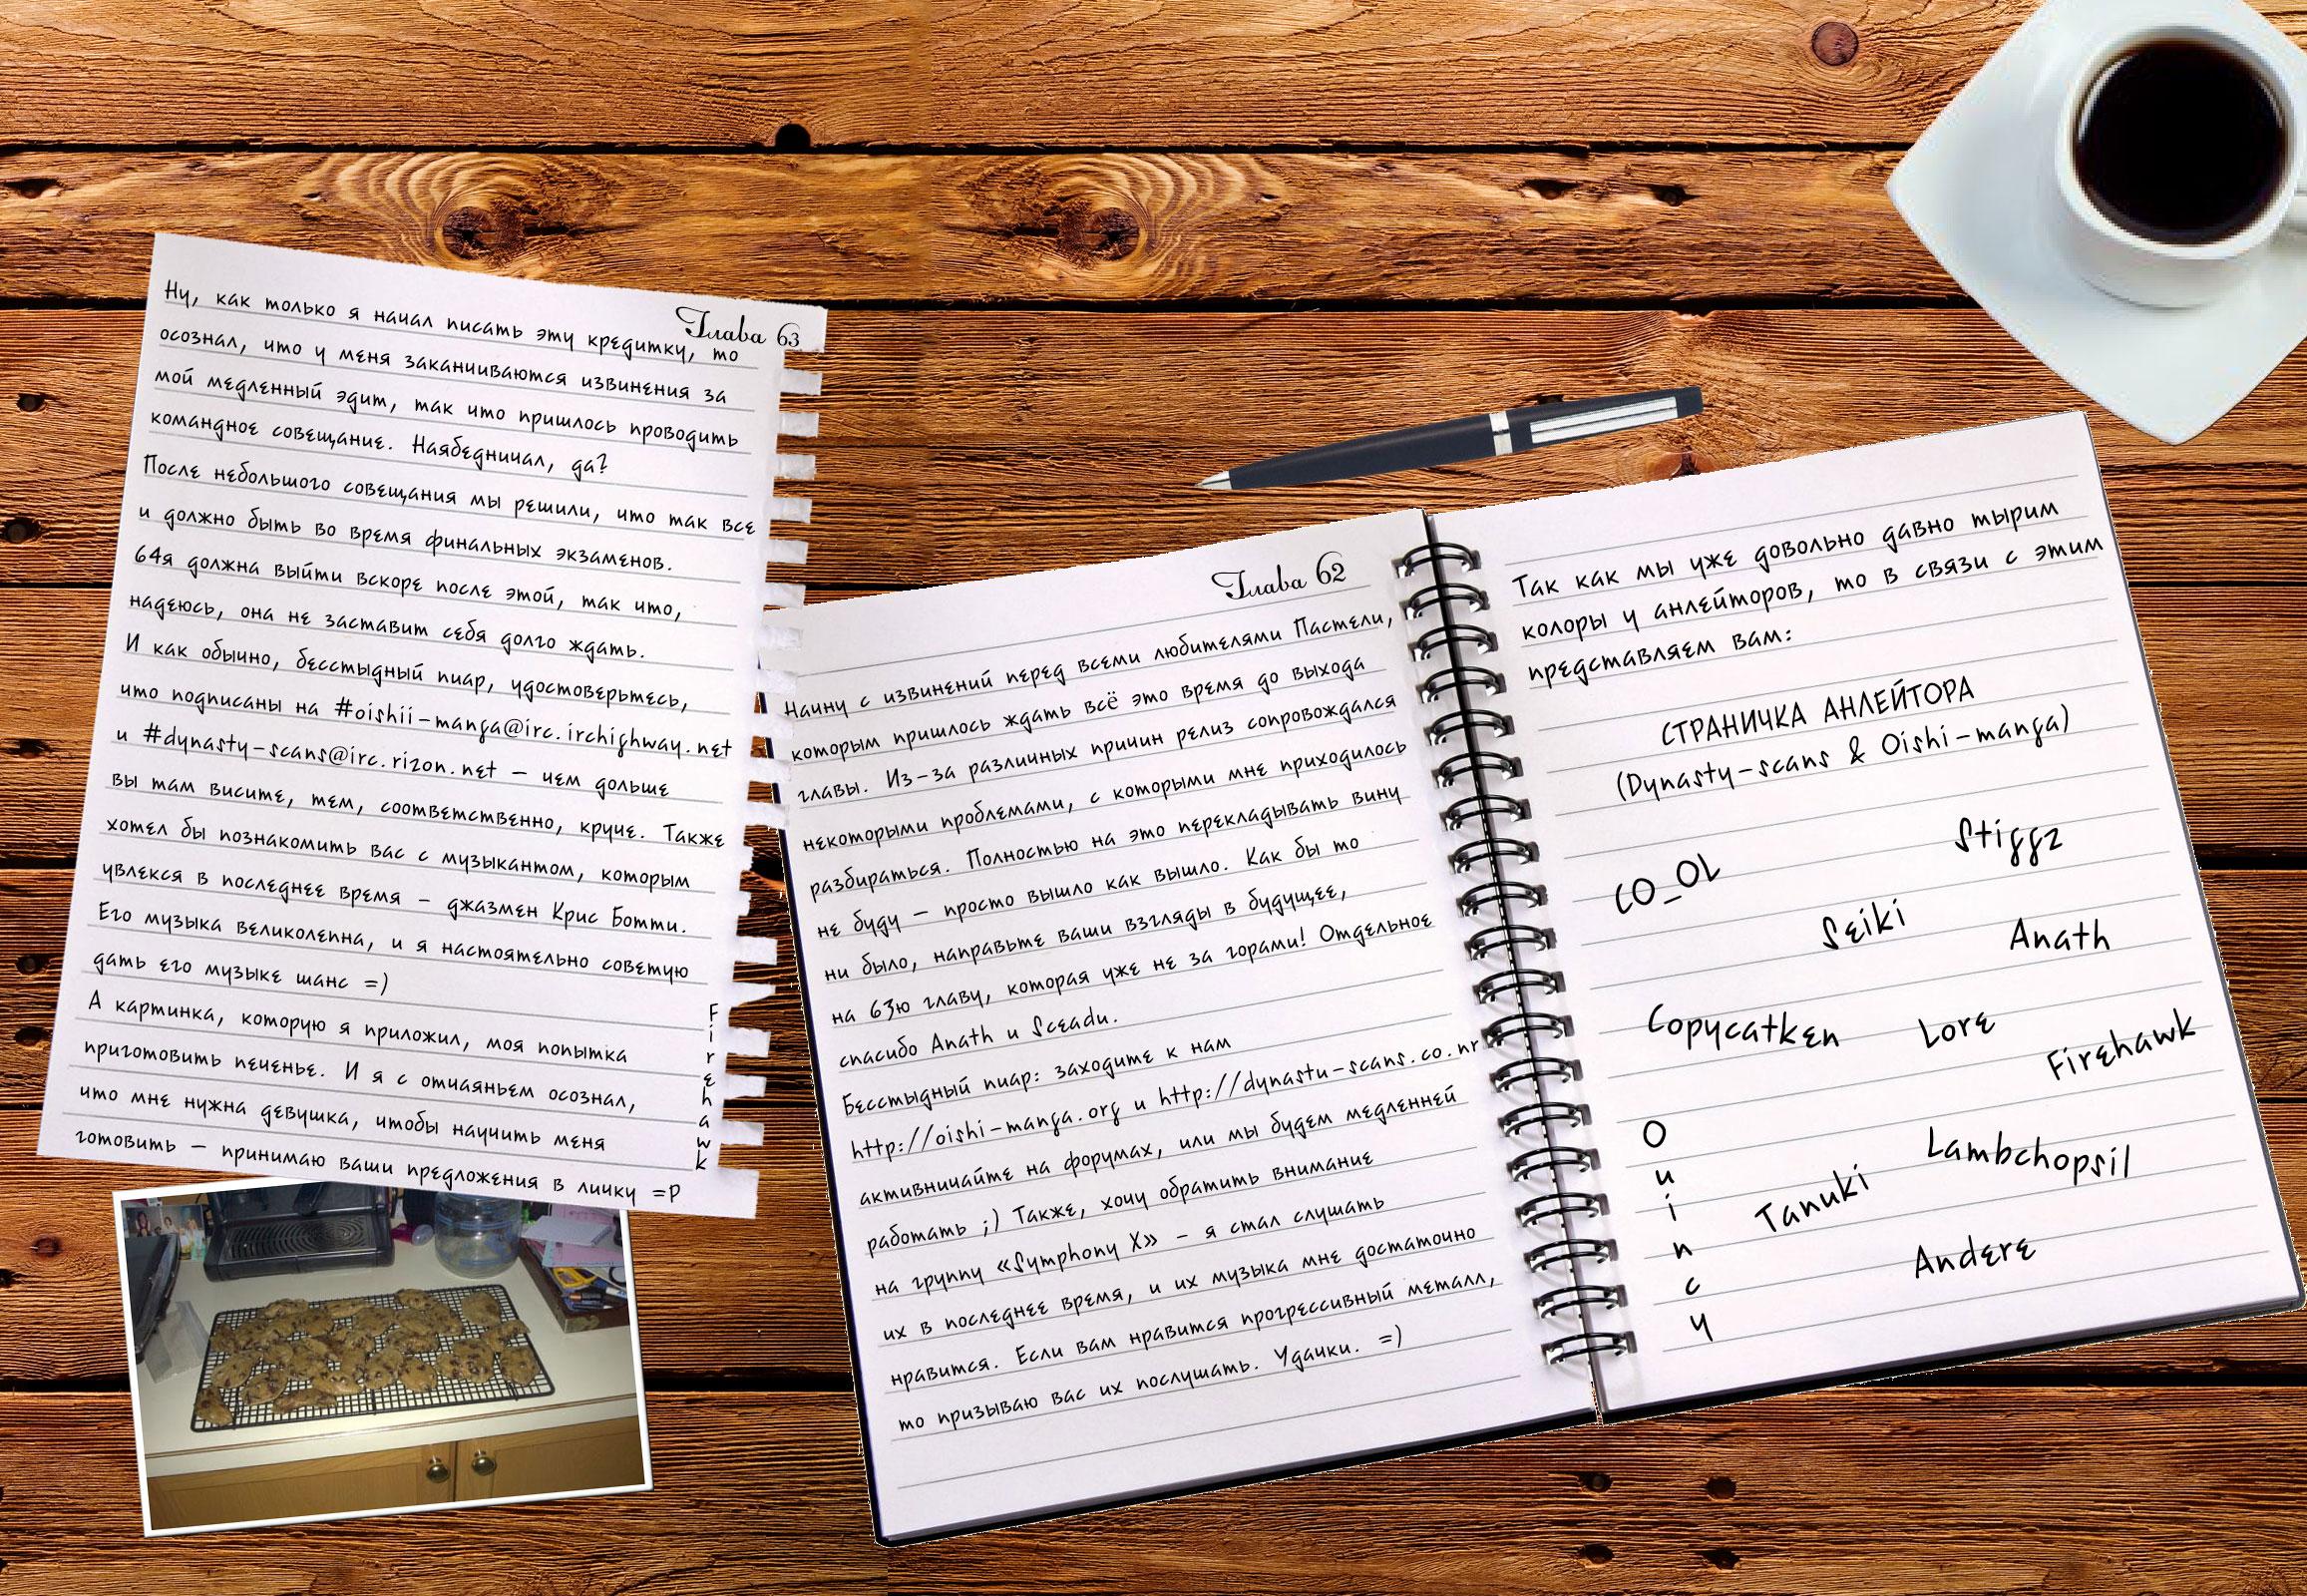 Глава 63
Ну, как только я начал писать эту кредитку, то
осознал, что у меня заканчиваются извинения за
мой медленный эдит, так что пришлось проводить
командное совещание. Наябедничал, да?
После небольшого совещания мы решили, что так все
и должно быть во время финальных экзаменов.
64я должна выйти вскоре после этой, так что,
надеюсь, она не заставит себя долго ждать.
И как обычно, бесстыдный пиар, удостоверьтесь,
что подписаны на #oishii-manga@irc.irchighway.net
и #dynasty-scans@irc.rizon.net – чем дольше
вы там висите, тем, соответственно, круче. Также
хотел бы познакомить вас с музыкантом, которым
увлекся в последнее время – джазмен Крис Ботти.
Его музыка великолепна, и я настоятельно советую
дать его музыке шанс =)
А картинка, которую я приложил, моя попытка
приготовить печенье. И я с отчаяньем осознал,
что мне нужна девушка, чтобы научить меня
готовить – принимаю ваши предложения в личку =P
Firehawk
Глава 62
Начну с извинений перед всеми любителями Пастели,
которым пришлось ждать всё это время до выхода
главы. Из-за различных причин релиз сопровождался
некоторыми проблемами, с которыми мне приходилось
разбираться. Полностью на это перекладывать вину
не буду – просто вышло как вышло. Как бы то
ни было, направьте ваши взгляды в будущее,
на 63ю главу, которая уже не за горами! Отдельное
спасибо Anath и Sceadu.
Бесстыдный пиар: заходите к нам
http://oishi-manga.org и http://dynastu-scans.co.nr
активничайте на форумах, или мы будем медленней
работать ;) Также, хочу обратить внимание
на группу «Symphony X» – я стал слушать
их в последнее время, и их музыка мне достаточно
нравится. Если вам нравится прогрессивный металл,
то призываю вас их послушать. Удачки. =)
Так как мы уже довольно давно тырим
колоры у анлейторов, то в связи с этим
представляем вам:
СТРАНИЧКА АНЛЕЙТОРА
(Dynasty-scans & Oishi-manga)
CO_OL
Stiggz
Seiki
Anath
Copycatken
Lore
Firehawk
Quincy
Tanuki
Lambchopsil
Andere